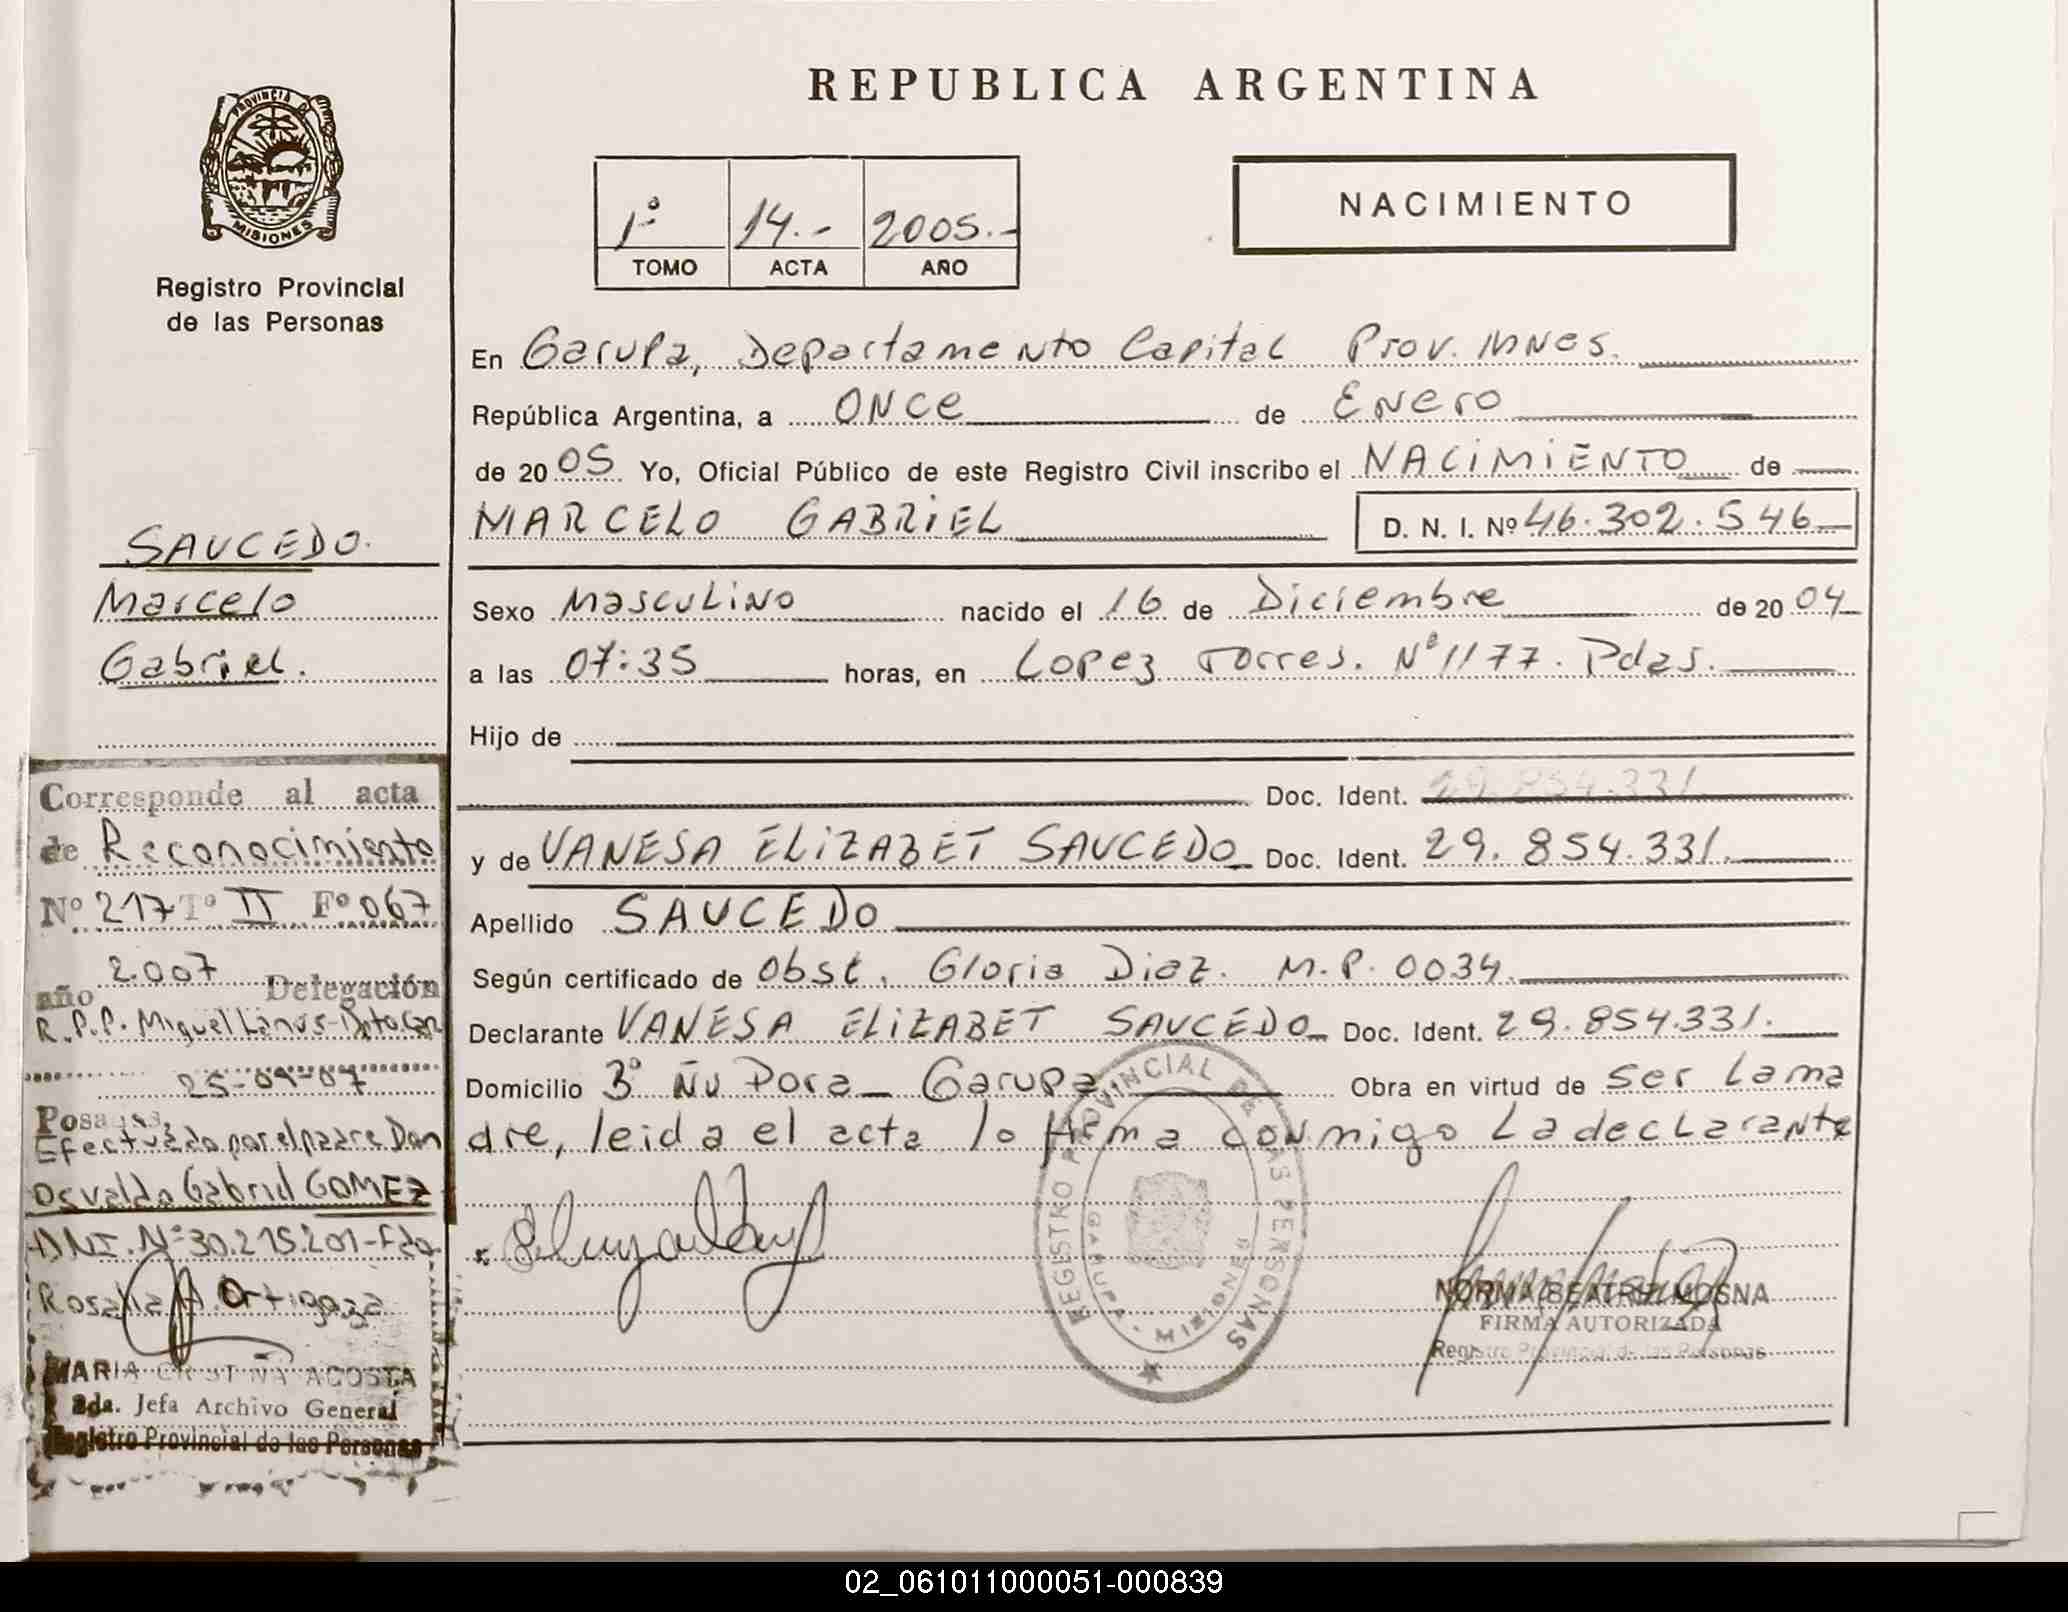 PROVINCIA DE
MISIONES
Registro Provincial
de las Personas
SAUCEDO.
Marcelo
Gabriel.
Corresponde al acta
de Reconocimiento
Nº 217 Tº II Fº 067
año 2.007 Delegación
R.P.P. Miguel Lanus-Dpto.Cap
25-09-07
Posadas,
Efectuado por el padre Don
Osvaldo Gabriel GOMEZ
DNI. Nº 30.215.201-Fdo
Rosalia A. Ortigoza
MARIA CRISTINA ACOSTA
2da. Jefa Archivo General
Registro Provincial de las Personas
REPUBLICA ARGENTINA
1º 14.- 2005.-
TOMO ACTA AÑO
NACIMIENTO
En Garupa, Departamento Capital Prov. Mnes.
República Argentina, a ONCE de Enero
de 2005 Yo, Oficial Público de este Registro Civil inscribo el NACIMIENTO de
MARCELO GABRIEL D. N. I. Nº 46.302.546
Sexo Masculino nacido el 16 de Diciembre de 2004
a las 07:35 horas, en Lopez Torres. Nº 1177. Pdas.
Hijo de
Doc. Ident. 29.854.331
y de VANESA ELIZABET SAUCEDO Doc. Ident. 29.854.331.
Apellido SAUCEDO
Según certificado de Obst. Gloria Diaz. M.P. 0034.
Declarante VANESA ELIZABET SAUCEDO Doc. Ident. 29.854.331.
Domicilio 3º Ñu Pora Garupa Obra en virtud de Ser La ma
dre, leida el acta lo firma conmigo La declarante
REGISTRO PROVINCIAL DE LAS PERSONAS
GARUPA - MISIONES
NORMA BEATRIZ MOSNA
FIRMA AUTORIZADA
Registro Provincial de las Personas
02_061011000051-000839